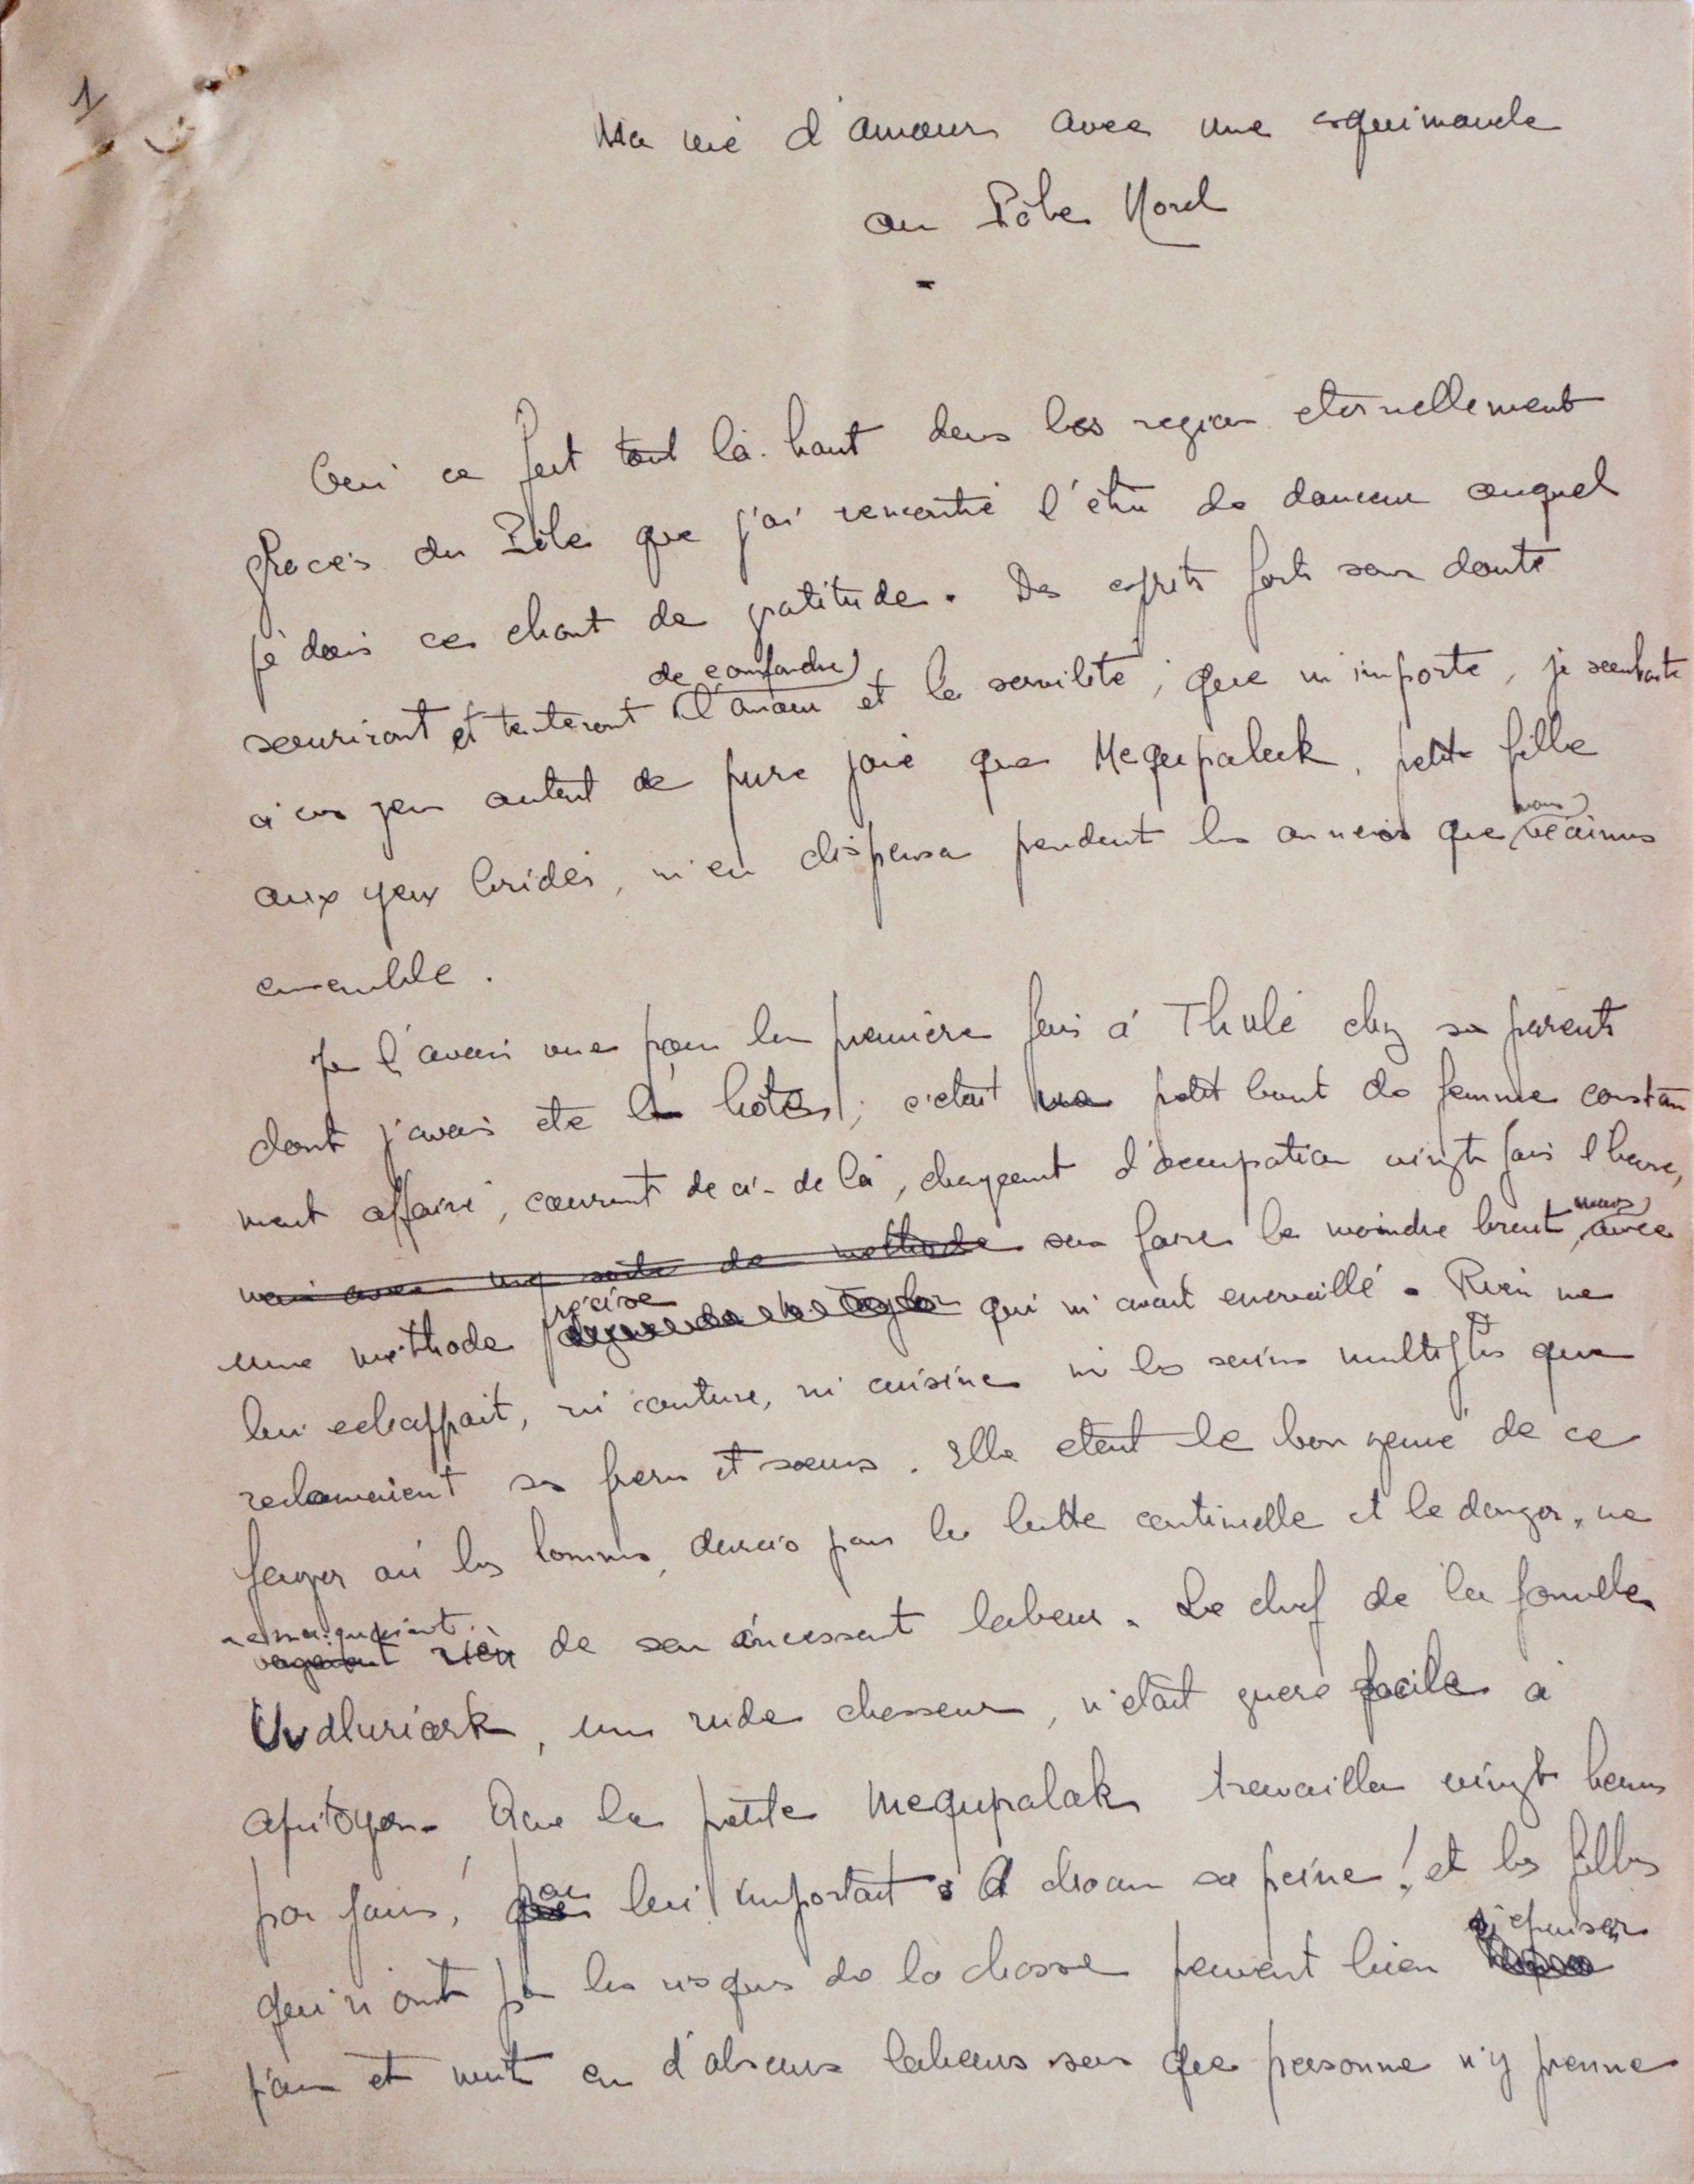 1
Ma vie d'amour avec une esquimaude
au Pôle Nord
-
Oui ce fut tout là-haut dans les region eternellement
glacés du Pôle que j'ai rencontré l'être de douceur auquel
je dois ce chant de gratitude. Des esprits forts sans doute
de confondre
souriront et tenteront l'amour et la servilité ; que m'importe, je souhaite
à ces gens autant de pure joie que Mequpaluk, petite fille
nous
aux yeux bridés, m'en dispensa pendant les années que vecumes
ensemble.
Je l'avais vue pour la première fois à Thulé chez ses parents
dont j'avais été l'hôte ; c'etait un petit bout de femme constam
ment affairé, courant de ci-de là, changeant d'occupation vingt fois l'heure,
mais
mais avec une sorte de methode sans faire le moindre bruit, avec
précise
une méthode qui m'avait emerveillé. Rien ne
lui echappait, ni couture, ni cuisine ni les soins multiples que
reclamaient ses freres et soeurs. Elle etait le bon genie de ce
foyer où les hommes, durcis par la lutte continuelle et le danger, ne
remarquaient
voyaient rien de son incessant labeur. Le chef de la famille
Uvdluriark, un rude chasseur, n'était guere facile à
apitoyer. Que la petite Mequpaluk travailla vingt heures
peu
par jours, que lui importait : A chacun sa peine ! et les filles
s'epuiser
qui n'ont pas les risques de la chasse peuvent bien
jour et nuit en d'obscurs labeurs sans que personne n'y prenne